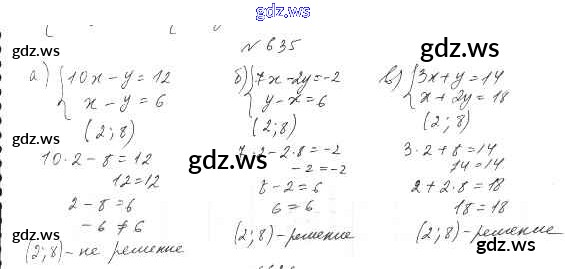 gdz.ws
№ 635
а) { 10x - y = 12
x - y = 6
(2; 8)
10·2 - 8 = 12
12 = 12
2 - 8 = 6
-6 ≠ 6
(2; 8) - не решение
б) { 7x - 2y = -2
y - x = 6
(2; 8)
7·2 - 2·8 = -2
-2 = -2
8 - 2 = 6
6 = 6
(2; 8) - решение
в) { 3x + y = 14
x + 2y = 18
(2; 8)
3·2 + 8 = 14
14 = 14
2 + 2·8 = 18
18 = 18
(2; 8) - решение
gdz.ws
gdz.ws
gdz.ws
gdz.ws
gdz.ws
gdz.ws
gdz.ws
gdz.ws